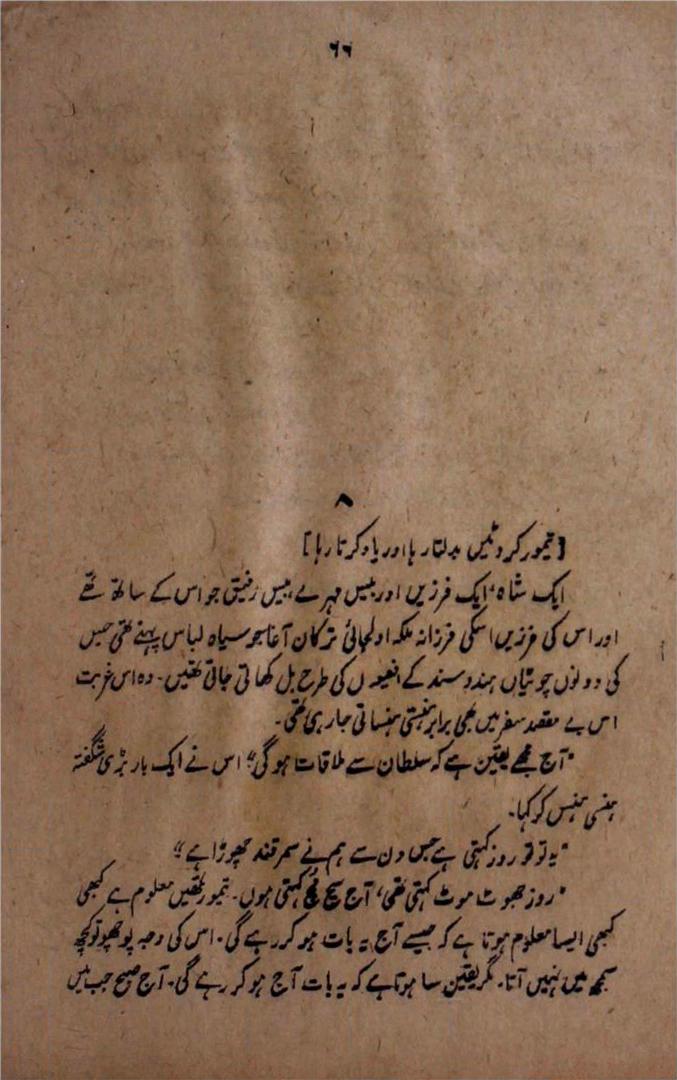 ۶۶
۸
[تیمور کروٹیں بدلتا رہا اور یاد کرتا رہا]
ایک شاہ، ایک فرزیں اور بیس مہرے، بیس رفیق جو اس کے ساتھ تھے
اور اس کی فرزیں اسکی فرزانہ ملکہ اولجائی ترکان آغا جو سیاہ لباس پہنے تھی جس
کی دونوں چوٹیاں ہند و سند کے افعیوں کی طرح بل کھاتی جاتی تھیں۔ وہ اس غربت
اس بے مقصد سفر میں بھی برابر ہنستی ہنساتی جا رہی تھی۔
"آج مجھے یقین ہے کہ سلطان سے ملاقات ہوگی" اس نے ایک بار بڑی شگفتہ
ہنسی ہنس کو کہا۔
"یہ تو تو روز کہتی ہے جس دن سے ہم نے سمرقند چھوڑا ہے"
"روز جھوٹ موٹ کہتی تھی، آج سچ مچ کہتی ہوں۔ تیمور تمھیں معلوم ہے کبھی
کبھی ایسا معلوم ہوتا ہے کہ جیسے آج یہ بات ہو کر رہے گی۔ اس کی وجہ پوچھو تو کچھ
سمجھ میں نہیں آتا۔ مگر یقین سا ہوتا ہے کہ یہ بات آج ہو کر رہے گی۔ آج صبح جب میں